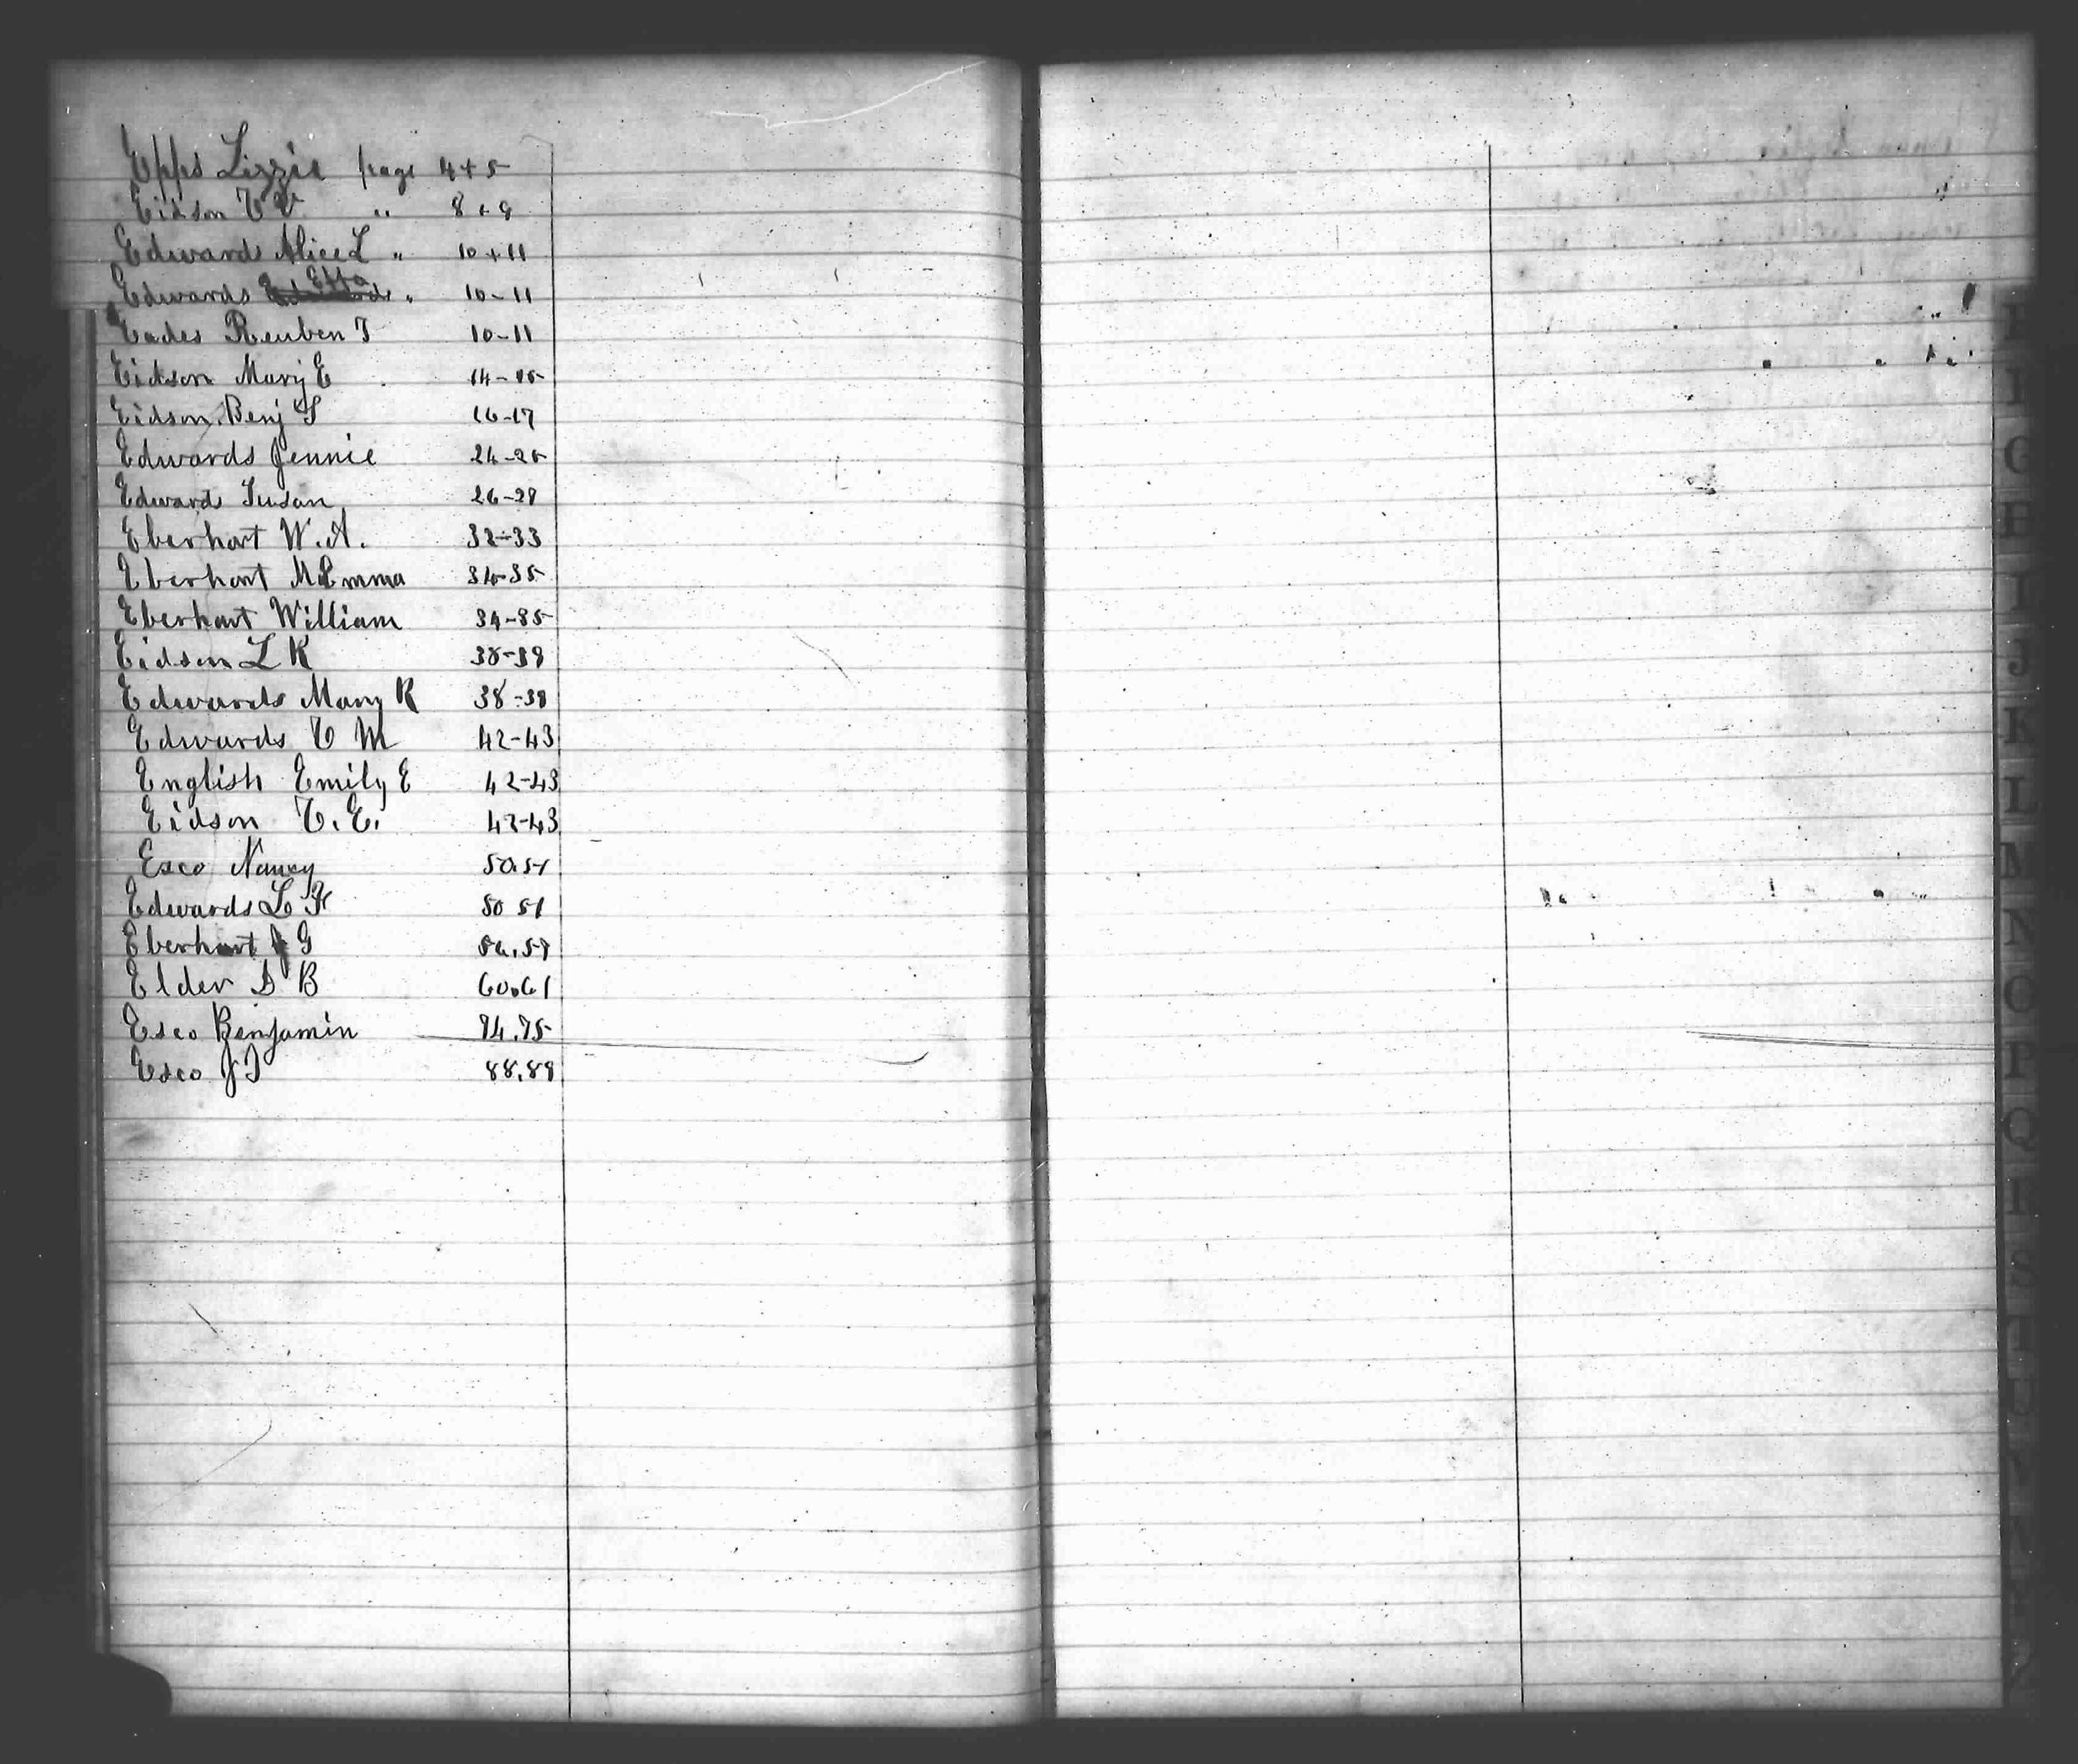 Epps Lizzie page 4+5
Eidson " 8+9
Edwards Alice L " 10+11
Edwards Etta " 10-11
Eades Reuben T 10-11
Eidson Mary E 14-15
Eidson Benj S 16-17
Edwards Jennie 24-25
Edwards Susan 26-27
Eberhart W. A. 32-33
Eberhart M Emma 34-35
Eberhart William 34-35
Eidson L K 38-39
Edwards Mary K 38-39
Edwards T M 42-43
English Emily E 42-43
Eidson T. E. 42-43
Esco Nancy 50.51
Edwards L F 50 51
Eberhart J G 56.57
Elder D B 60.61
Esco Benjamin 74.75
Esco J T 88.89
G
J
K
L
M
N
O
P
Q